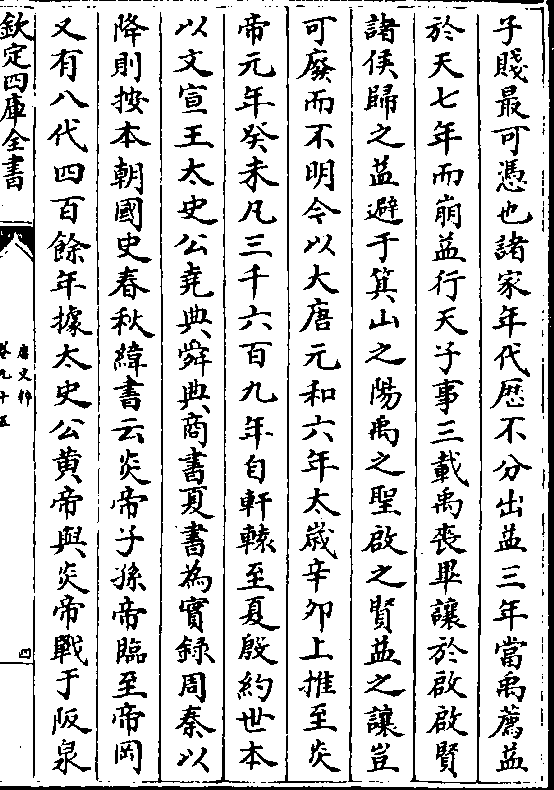 子賤最可憑也諸家年代歴不分出益三年當禹薦益
於天七年而崩益行天子事三載禹喪畢讓於啟啟賢
諸侯歸之益避于箕山之陽禹之聖啟之賢益之讓豈
可廢而不明今以大唐元和六年太嵗辛卯上推至炎
帝元年癸未凡三千六百九年自軒轅至夏殷約世本
以文宣王太史公堯典舜典商書夏書為實録周秦以
降則按本朝國史春秋緯書云炎帝子孫帝臨至帝岡
又有八代四百餘年據太史公黄帝與炎帝戰于阪泉
欽定四庫全書
唐文粹
卷九十五
四